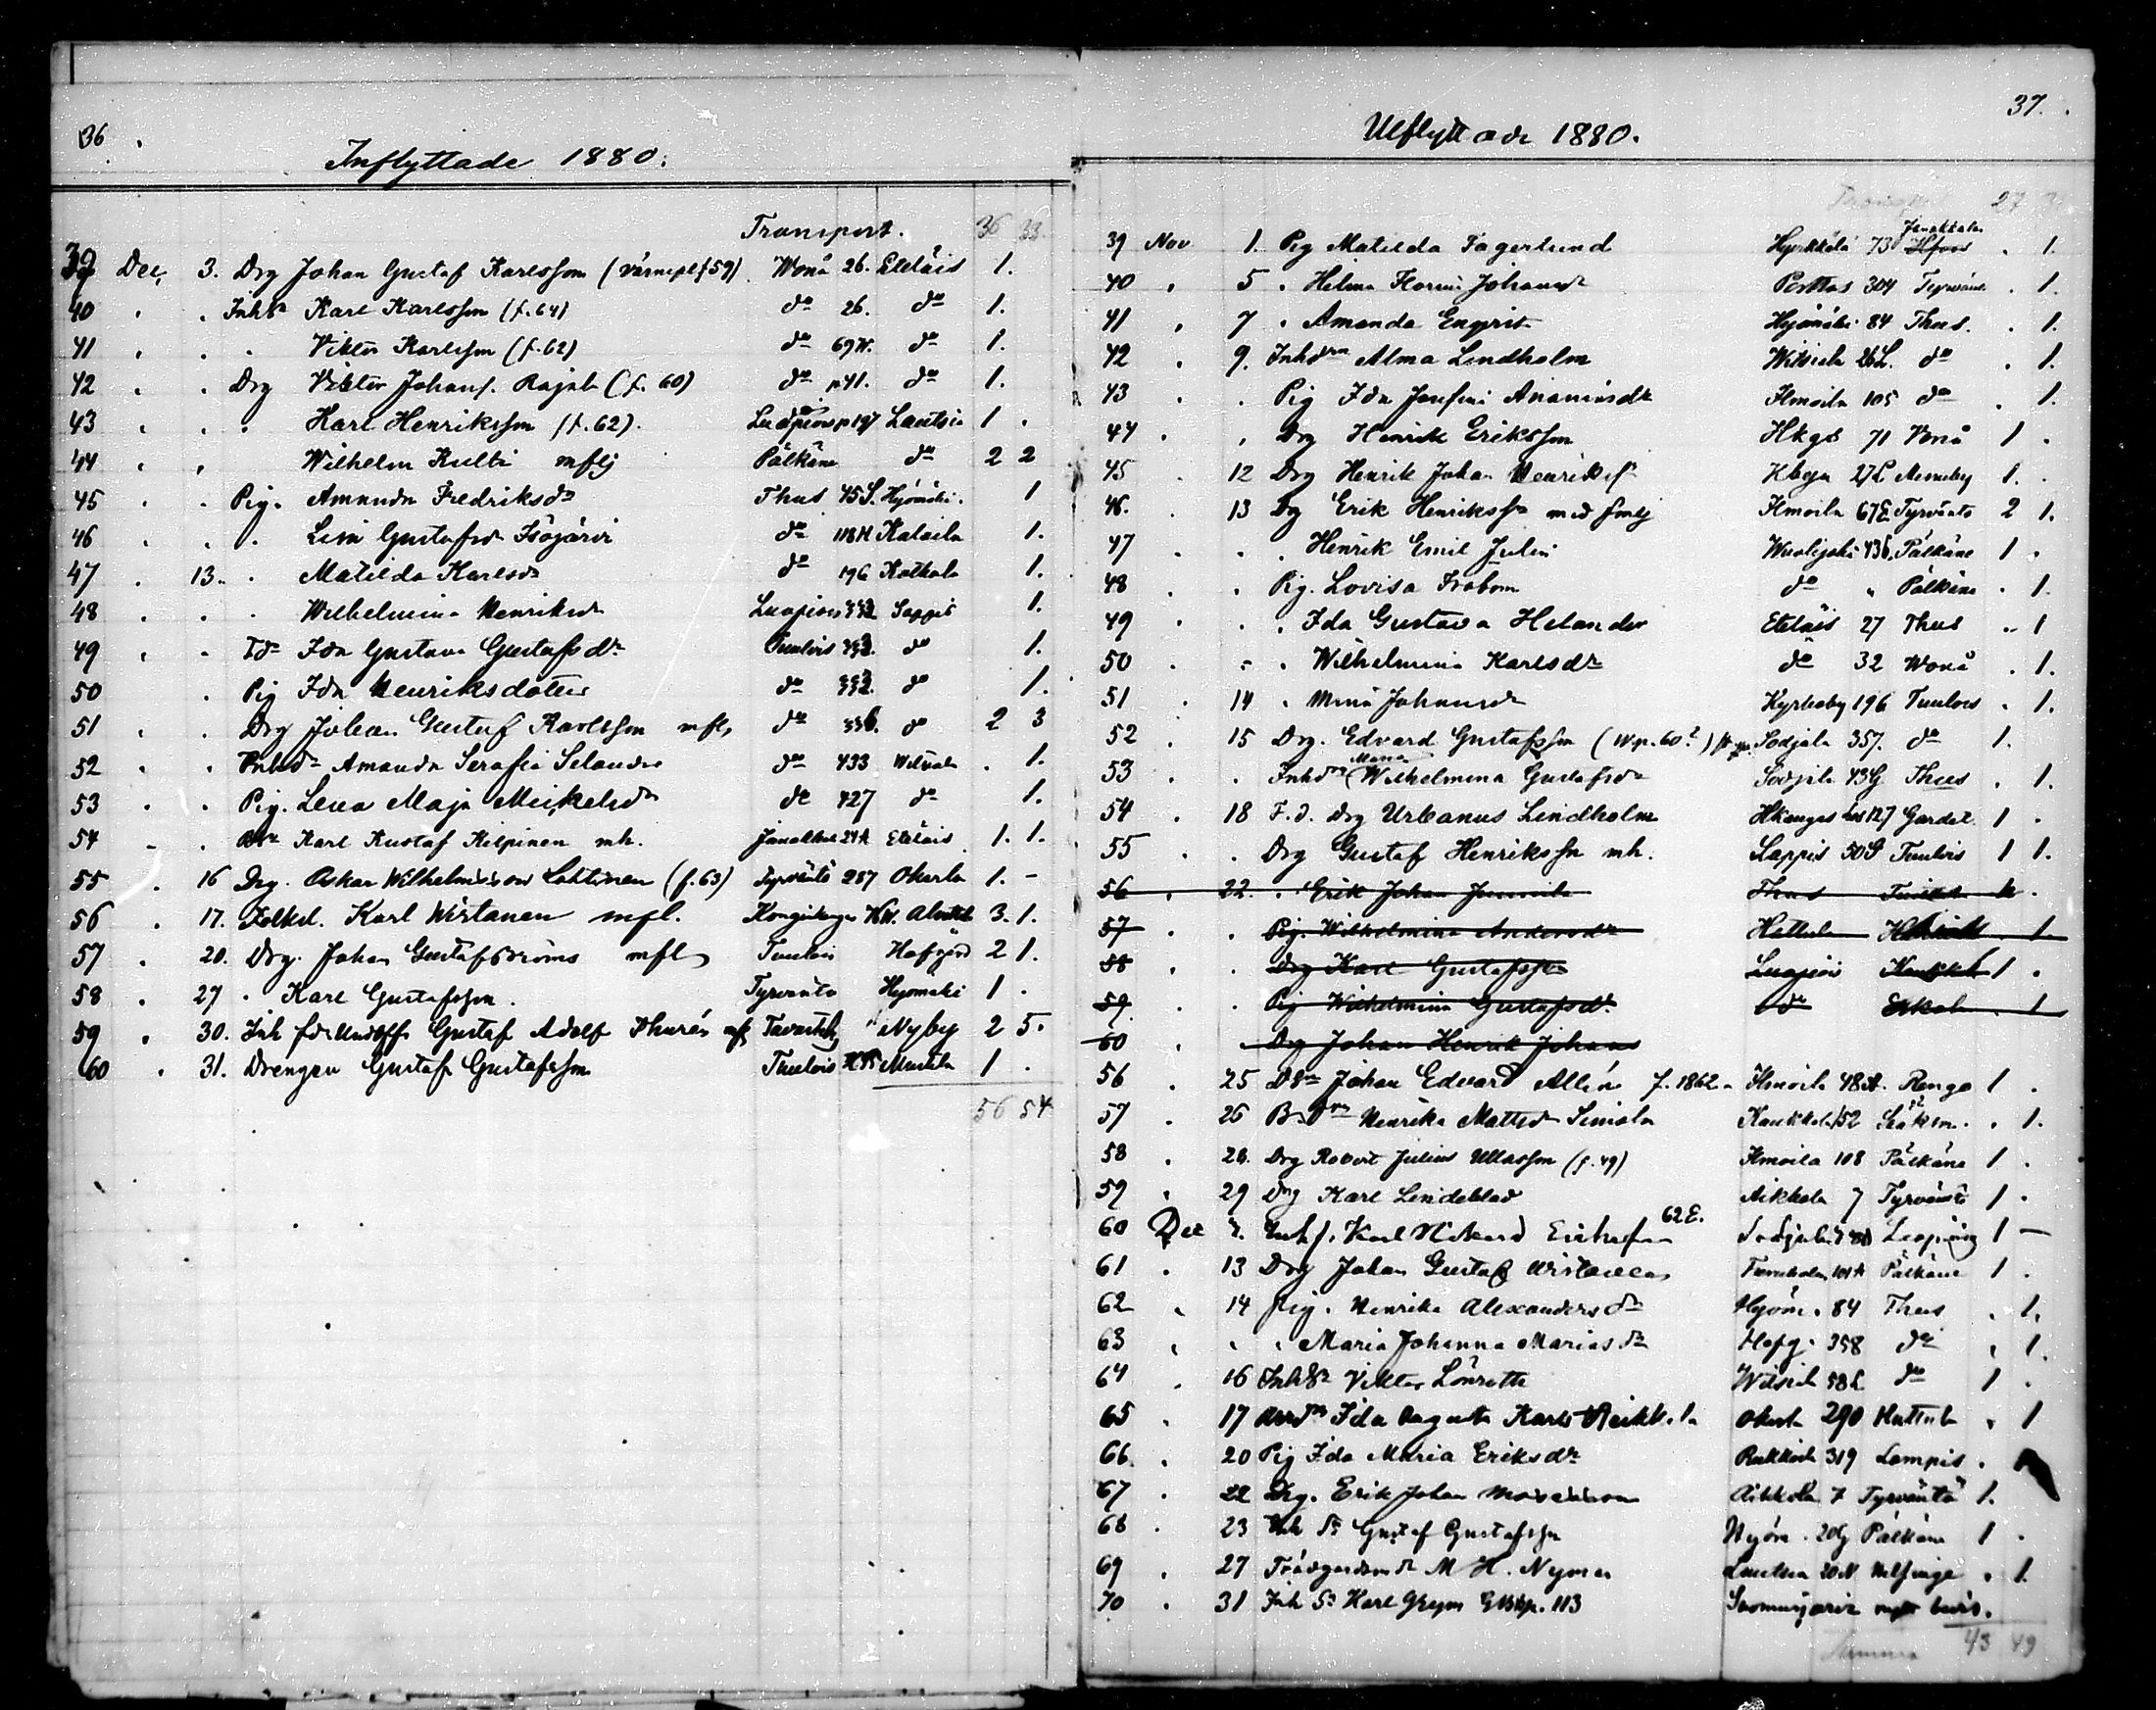 36
Inflyttade 1880.
Transport. 36 33.
39 Dec. 3. Drg Johan Gustaf Karlsson (värnepl. f 59) Wonå 26. Eteläis 1.
40 . . Inhs Karl Karlsson (f. 64) do 26. do 1.
41 . . . Viktor Karlsson (f. 62) do 69 do 1.
42 . . Drg Viktor Johans. Rajala (f. 60) do p41. do 1.
43 . . . Karl Henriksson (f. 62). Luopiois p 197 Lautsia 1 .
44 . . Wilhelm Kulti mflj Pälkäne do 2 2
45 . Pig. Amanda Fredriksdr Thus 45 S. Hyömäki. 1
46 . . . Lisa Gustafsdr Isojärvi do 118 H Kalaila 1.
47 . 13. . Matilda Karlsdr do 196 Kotkola 1.
48 . . . Wilhelmina Henriksdr Luopiois 332 Sappis 1.
49 . . Ida Gustava Gustafsdr Tuulois do 1.
50 . Pig Ida Henriksdotter do 332. do 1.
51 . . Drg Johan Gustaf Karlsson mflj do 336. do 2 3
52 . . Inhdr Amanda Serafia Selander do 433 . 1.
53 . . Pig. Lena Maja Mickelsdr do 427 do 1.
54 . . Karl Kustaf Kilpinen mh. Janakkala 24 A Eteläis 1. 1.
55 . 16 Drg. Oskar Wilhelmsson Lahtinen (f. 63) Tyrväntö 287 Okerla 1. -
56 . 17. Folksk. Karl Wirtanen mfl. 3. 1.
57 . 20. Drg. Johan Gustafsströms mfl Tuulois Hofgård 2 1.
58 . 27 . Karl Gustafsson. Tyrväntö Hyömäki 1 .
59 . 30. Inh fd Undoff. Gustaf Adolf Thurén mf Tavasteh. Nyby 2 5.
60 . 31. Drengen Gustaf Gustafsson Tuulois 1 .
56 54
37.
Utflyttade 1880.
Transport 27
Janakkala
39 Nov 1. Pig Matilda Fagerlund 73 Hfors . 1.
40 . 5 . Helma Florin Johansdr 304 Tyrväntö . 1.
41 . 7 . Amanda Enqvist Hyömäki 84 Thus. . 1.
42 . 9. Inhdrn Alma Lindholm Wiksila 26 L. do . 1.
43 . . Pig Ida Josefina Ananiasdr Ilmoila 105 do . 1.
44 . . Drg Henrik Eriksson Hkgs 71 Vonå 1 .
45 . 12 Drg Henrik Johan Henrikss. 27 L 1. .
46. . 13 Drg Erik Henrikssn med fmlj Ilmoila 67 E Tyrväntö 2 1.
47 . . . Henrik Emil Julin 436 Pälkäne 1 .
48 . . Pig. Lovisa Frobom do " Pälkäne . 1.
49 . . . Ida Gustava Helander Eteläis 27 Thus . 1
50 . . . Wilhelmina Karlsdr do 32 Wonå . 1.
51 . 14 . Mina Johansdr Kyrkoby 196 Tuulois . 1.
52 . 15 Drg. Edvard Gustafsson (W. p. 60?) Sodjala 357. do 1.
Maria
53 . . Inhdr (Wilhelmina Gustafsdr Sodjala 43 G Thus . 1.
54 . 18 F.d. Drg Urbanus Lindholm Hkangas 127 Gardet 1 .
55 . . Drg Gustaf Henrikssn mh. Sappis 50 S Tuulois 1 1.
56 . 22. . Erik Johan Thus .
57 . . Pig. Wilhelmina Andersdr Hattula . 1.
58 . . Drg Karl Gustafsson Luopiois 1 .
59 . . Pig Wilhelmina Gustafsdr do . 1
60 . Drg Johan Henrik Johans
56 . 25 Johan Edvard Allén f. 1862. Ilmoila 48 A. Rengo 1 .
57 . 26 Henrika Mattsdr Simola Kaukkala 152 Sääksm. . 1.
58 . 28. Drg Robert Julius Ullasson (f. 49) Ilmoila 108 Pälkäne 1 .
59 . 29 Drg Karl Lindeblad Aikkala 7 Tyrväntö 1 .
62 E.
60 Dec 7. Inh s. Karl Rikard Erikssn Sodjala Luopiois 1 —
61 . 13 Drg Johan Gustaf Wirtanen 101 A Pälkäne 1 .
62 . 14 Pig. Henrika Alexandersdr Hyöm. 84 Thus . 1.
63 . . . Maria Johanna Mariasdr Hofg. 358 do . 1.
64 . 16 Inhsn Viktor Lönroth Wiksila 58 L do 1 .
65 . 17 Ida Augusta Karls Heikkilä Okerla 290 Hattula . 1
66. . 20 Pig Ida Maria Eriksdr 319 Lampis .
67 . 22 Drg. Erik Johan Aikkala 7 Tyrväntö 1.
68 . 23 Inh Sn Gustaf Gustafssn Hyöm. 20 G Pälkäne 1 .
69 . 27 Trädgårdsm M H. Nyman Lautsia 20 N Helsinge . 1.
70 . 31 Inh Sn Karl 113
Summa 43 49